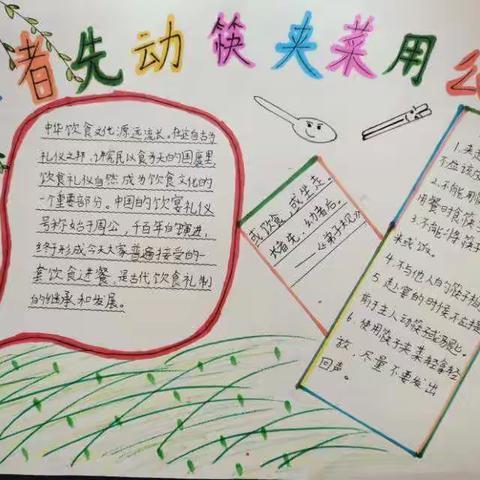 者先动筷夹菜用公
中华饮食文化源远流长。在这自古为
礼仪之邦,讲究民以食为天的国度里
饮食礼仪自然成为饮食文化的
一个重要部分。中国的饮宴礼仪
号称始于周公,千百年的演进,
终于形成今天大家普遍接受的一
套饮食进餐,是古代饮食礼制
的继承和发展。
或饮食,或坐走。
长者先,幼者后。
——《弟子规》
1.夹
不应该
2.不能用
用餐时
3.不能将筷子
来或
4.不与他人的筷子
5.赴宴的时候不应
前于主人动筷
6.使用筷子夹菜轻拿轻
放,尽量不要发出
回声。